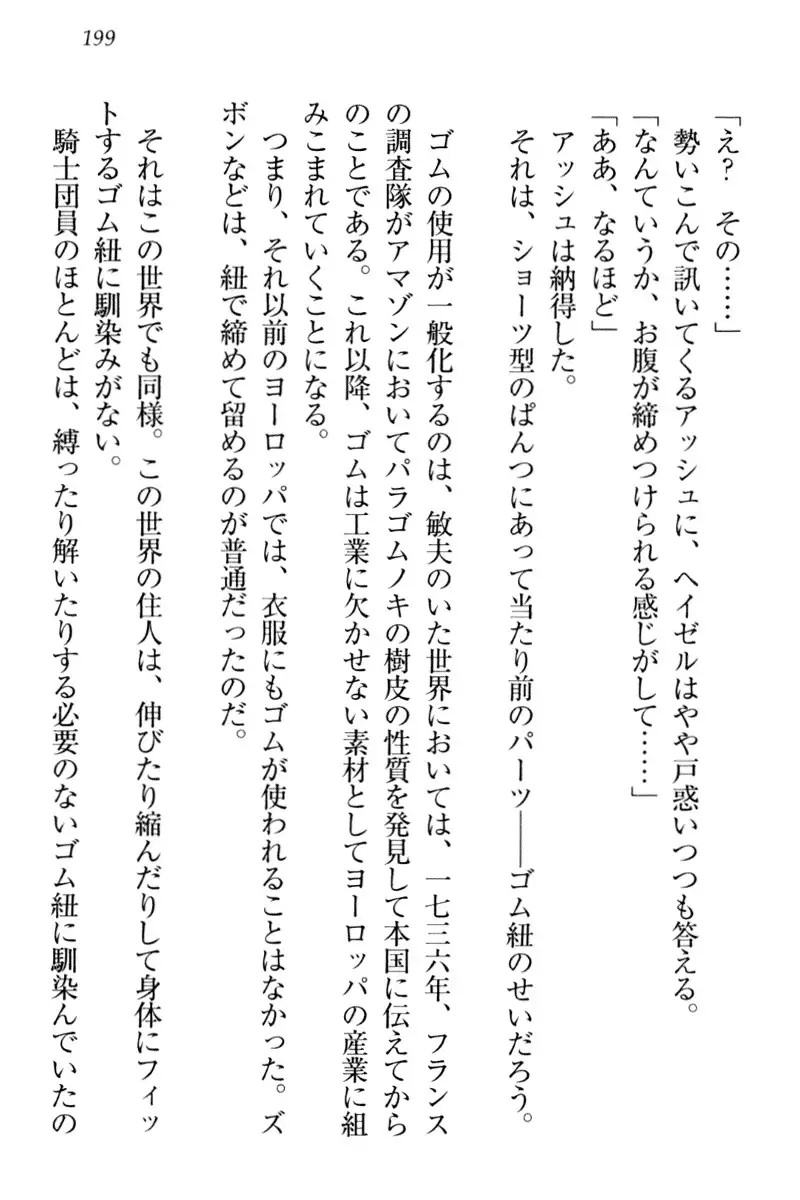 199
「え？　その……」
勢いこんで訊いてくるアッシュに、ヘイゼルはやや戸惑いつつも答える。
「なんていうか、お腹が締めつけられる感じがして……」
「ああ、なるほど」
アッシュは納得した。
それは、ショーツ型のぱんつにあって当たり前のパーツ――ゴム紐のせいだろう。
ゴムの使用が一般化するのは、敏夫のいた世界においては、一七三六年、フランス
の調査隊がアマゾンにおいてパラゴムノキの樹皮の性質を発見して本国に伝えてから
のことである。これ以降、ゴムは工業に欠かせない素材としてヨーロッパの産業に組
みこまれていくことになる。
つまり、それ以前のヨーロッパでは、衣服にもゴムが使われることはなかった。ズ
ボンなどは、紐で締めて留めるのが普通だったのだ。
それはこの世界でも同様。この世界の住人は、伸びたり縮んだりして身体にフィッ
トするゴム紐に馴染みがない。
騎士団員のほとんどは、縛ったり解いたりする必要のないゴム紐に馴染んでいたの